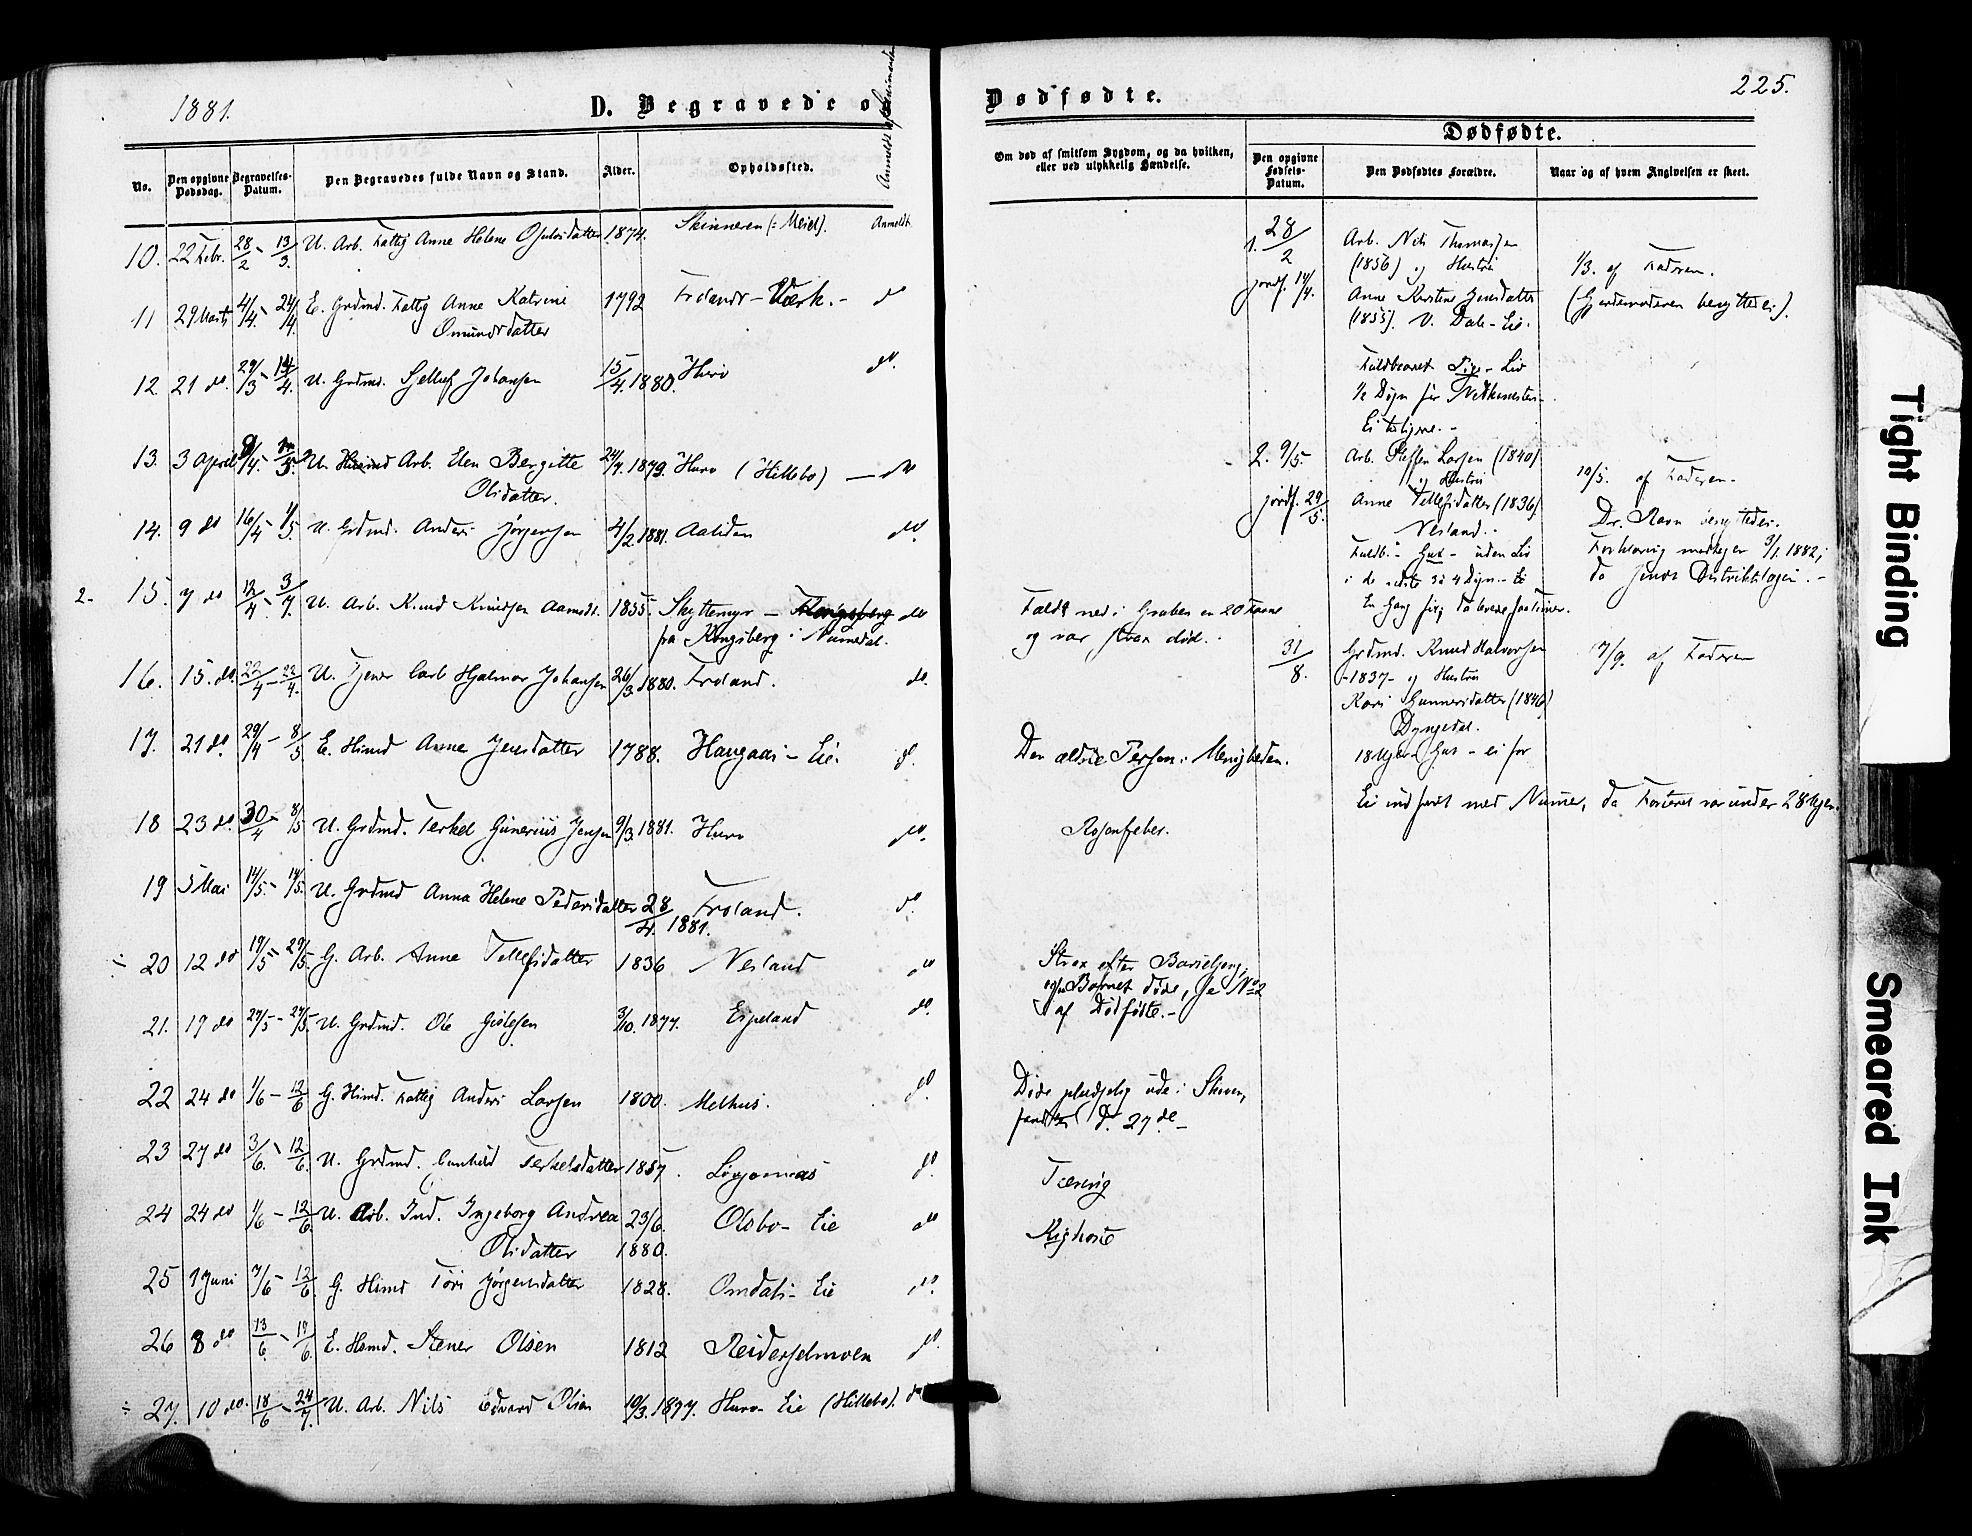 1881.
D. Begravede o
Anmeldt
No.
Den opgivne Dødsdag.
Begravelses-Datum.
Den Begravedes fulde Navn og Stand.
Alder.
Opholdssted.
10. 22 Febr. 28/2 - 13/3. U. Arb. Fattig Anne Helene 1874. Skinneren (: Meiel). Anmeldt
11 29 Marts 4/4. - 24/4 E. Grdmd. Fattig Anne Katrine 1792 Frolands-Værk. - do
Omundsdatter
12 21 do. 29/3 - 4. U. Grdmd. Sjellef Johansen 15/4 1880. Hurv do.
13. 3 April /4. - /5. U. Arb. Elen Bergitte 24/7. 1879. Hurv (Hillebo) — do
Olsdatter.
14. 9 do 16/4 - 1/5. U. Grdmd. Anders Jørgensen 4/2. 1881. do.
2. 15. 7 do 12/4. - 3/7. U. Arb. Knud Knudsen Aamodt. 1855. Skyttemyr - Kongsberg do
fra Kongsberg i Numedal.
16. 15. do. 22/4 - 22/4. U. Tjener Carl Hjalmar Johansen 26/3 1880. Froland. do.
17. 21 do 29/4 - 8/5 E. Hsmd Anne Jensdatter 1788. Haugaas - Eie. do.
18 23 do. 30/4 - 8/5 U. Grdmd. Terkel Gunerius Jensen 9/3 1881. Hurv do.
19 5 Mai 14/5 - 14/5. U. Grdmd Anna Helene Pedersdatter 28/4. 1881. Froland. do
÷ 20 12 do 19/5 - 29/5. G. Arb. Anne Tellefsdatter 1836 Nesland do
21. 19 do 27/5 - 27/5. U. Grdmd. Ole Gislesen 3/10. 1877. Espeland do.
22 24 do 1/6 - 12/6 G. Hsmd. Fattig Anders Larsen 1800. Melhus. do.
23 27 do 3/6. - 12/6. U. Grdmd. Gunhild Terkelsdatter 1857. do.
24 24 do 1/6 - 12/6. U. Arb. Ind. Ingeborg Andrea 23/6. Olsbo- Eie do
Olsdatter 1880.
25 1 Juni 7/6 - 12/6. G. Hsmd Tori Jørgensdatter 1828. Omdals- Eie do.
26 8 do 13/6. - 19/6. E. Hsmd. Stener Olsen 1812 Reiderselmoen do.
÷ 27. 10 do. 18/6 - 24/7. U. Arb. Nils Edvard Olsen 10/3. 1877. Hurv- Eie (Hillebo). do
Dødfødte.
225.
Om død af smitsom Sygdom, og da hvilken, eller ved ulykkelig Hændelse.
Dødfødte.
Den opgivne Fødsels-Datum.
Den Dødfødtes Forældre.
Naar og af hvem Angivelsen er skeet.
1. 28/2 Arb. Nils Thomassen
(1856) og Hustru 1/3. af Faderen.
jordf. 14/4. Anne Kirstine Jensdatter (Gjordemoderen benyttedes).
(1855). V. Dale - Eie.
Fuldbaaret Pige - Liv
1/2 Døgn før Nedkomsten -
Ei
2. 9/5. Arb. Steffen Larsen (1840)
og Hustru 10/5. af Faderen -
jordf. 29/5. Anne Tellefsdatter (1836)
Nesland. - Dr. Ravn benyttedes.
Fuldb. - Gut - uden Liv Forklaring modtagen 3/1. 1882,
i de sidste 3 à 4 Døgn. - Ei da Distriktslægen. -
En Gang før, da levende
Faldt ned i Gruben en 20 Favne
og var strax død. -
31/8. Grdmd. Knud Halvorsen
- 1837 - og Hustru 17/9. af Faderen
Kari Gunnersdatter (1846)
Dyngedal.
18 Uger. Gut - ei før
Ei indført med Numer, da Fosteret var under 28 Uger.
Den ældste Person i Menigheden.
Rosenfeber.
Strax efter Barselseng,
og Barnet døde, se No 2
af Dødfødte. -
Døde pludselig ude i Skoven,
funden d. 27de -
Tæring
Kighoste
Tight Binding
Smeared Ink